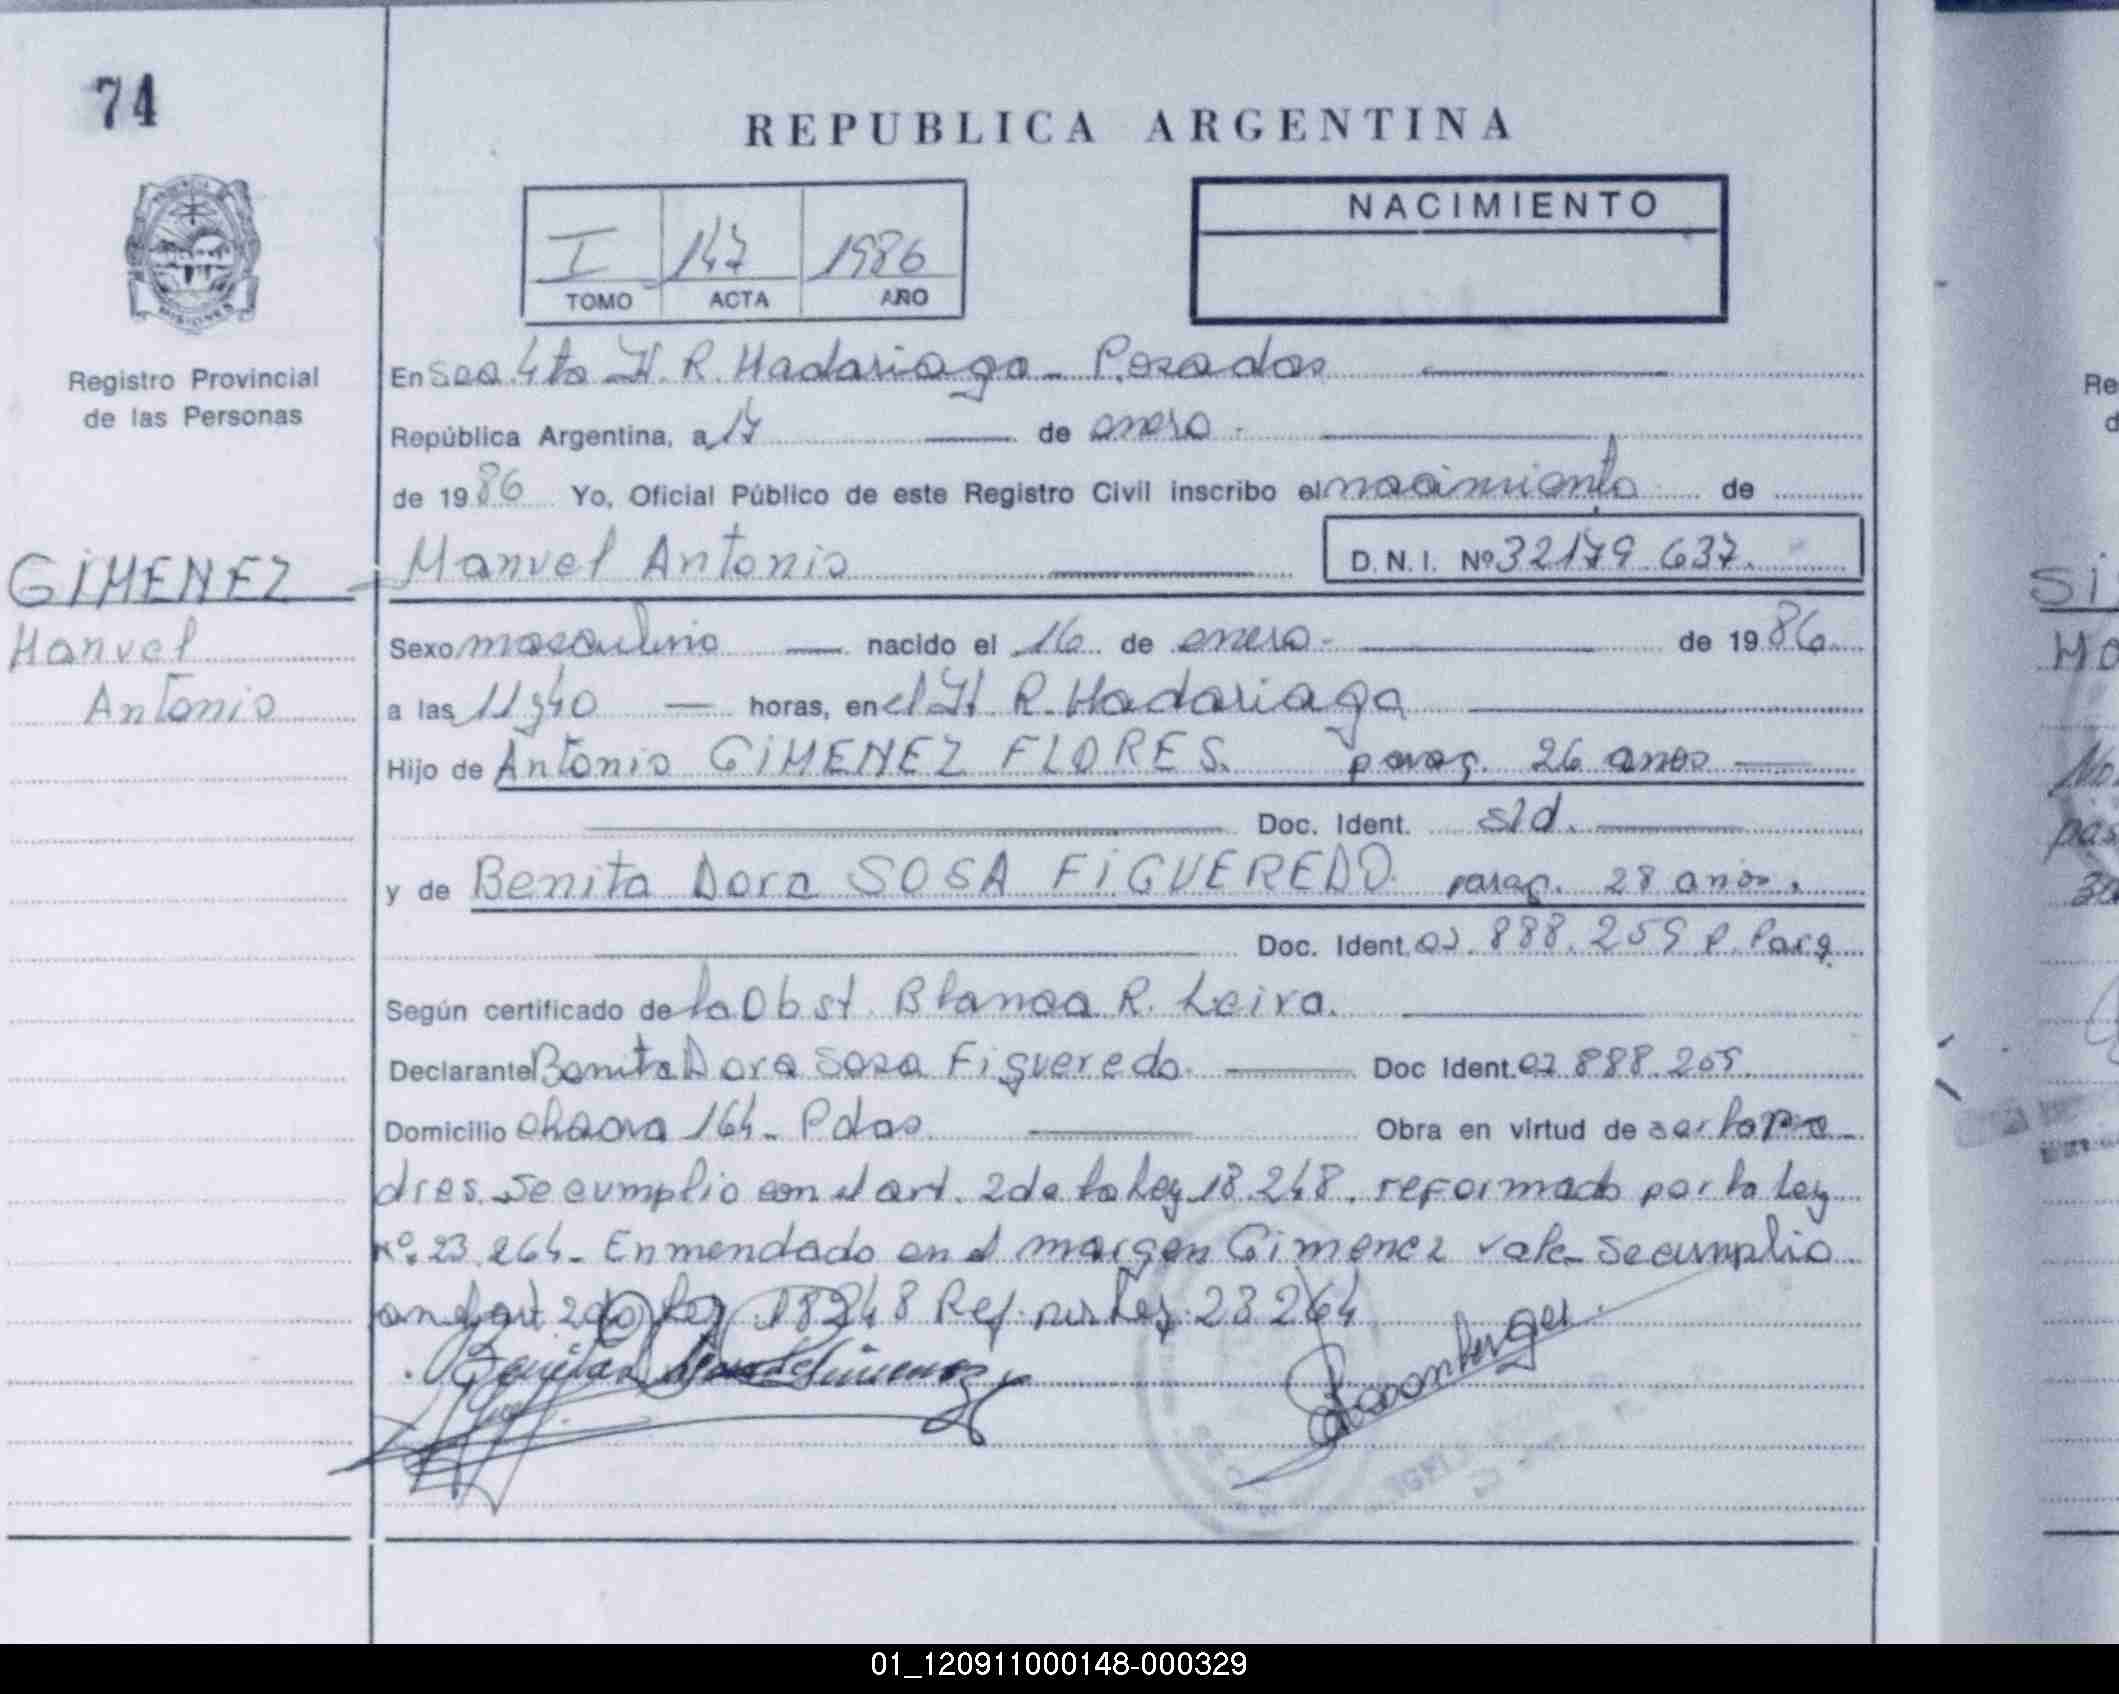 74
REPUBLICA ARGENTINA
NACIMIENTO
I 147 1986
TOMO ACTA AÑO
MISIONES
Registro Provincial
de las Personas
En Sec. 4ta H. R. Madariaga - Posadas
República Argentina, a 17 de enero
de 1986 Yo, Oficial Público de este Registro Civil inscribo el nacimiento de
GIMENEZ
Manuel
Antonio
Manuel Antonio D.N.I. Nº 32179.637.
Sexo masculino nacido el 16 de enero de 1986
a las 11 y 40 horas, en el H. R. Madariaga
Hijo de Antonio GIMENEZ FLORES. parag. 26 anos
Doc. Ident. s/d.
y de Benita Dora SOSA FIGUEREDO parag. 28 anos.
Doc. Ident. 02.888.259 P. Parg.
Según certificado de la Obst. Blanca R. Leiva.
Declarante Benita Dora Sosa Figueredo. Doc Ident. 02 888.259.
Domicilio chacra 164 - Pdas. Obra en virtud de ser lo pa-
dres. Se cumplio con el art. 2 de la Ley 18.248. reformado por la Ley
Nº. 23.264. Enmendado en el margen Gimenez vale Se cumplio
con el art 2 de Ley 18248 Ref. por Ley. 23264
01_120911000148-000329